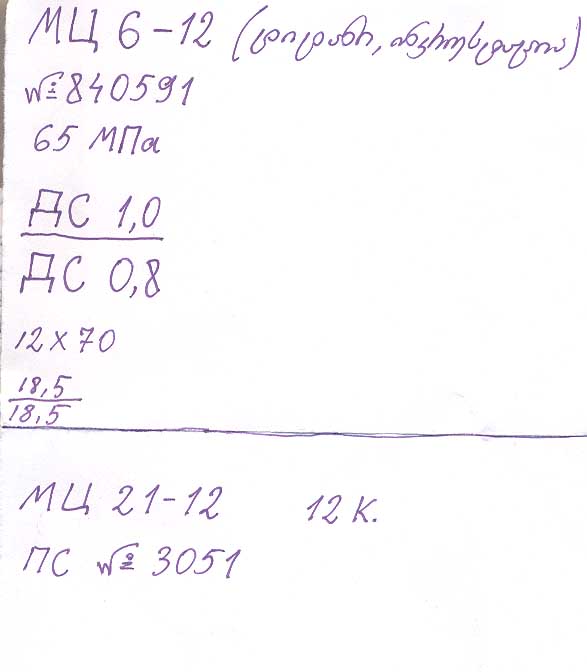 МЦ 6-12 (ტიტანი, ინკრუსტაცია)
№ 840591
65 МПа
ДС 1,0
ДС 0,8
12х70
18,5
18,5
МЦ 21-12 12 к.
ПС № 3051